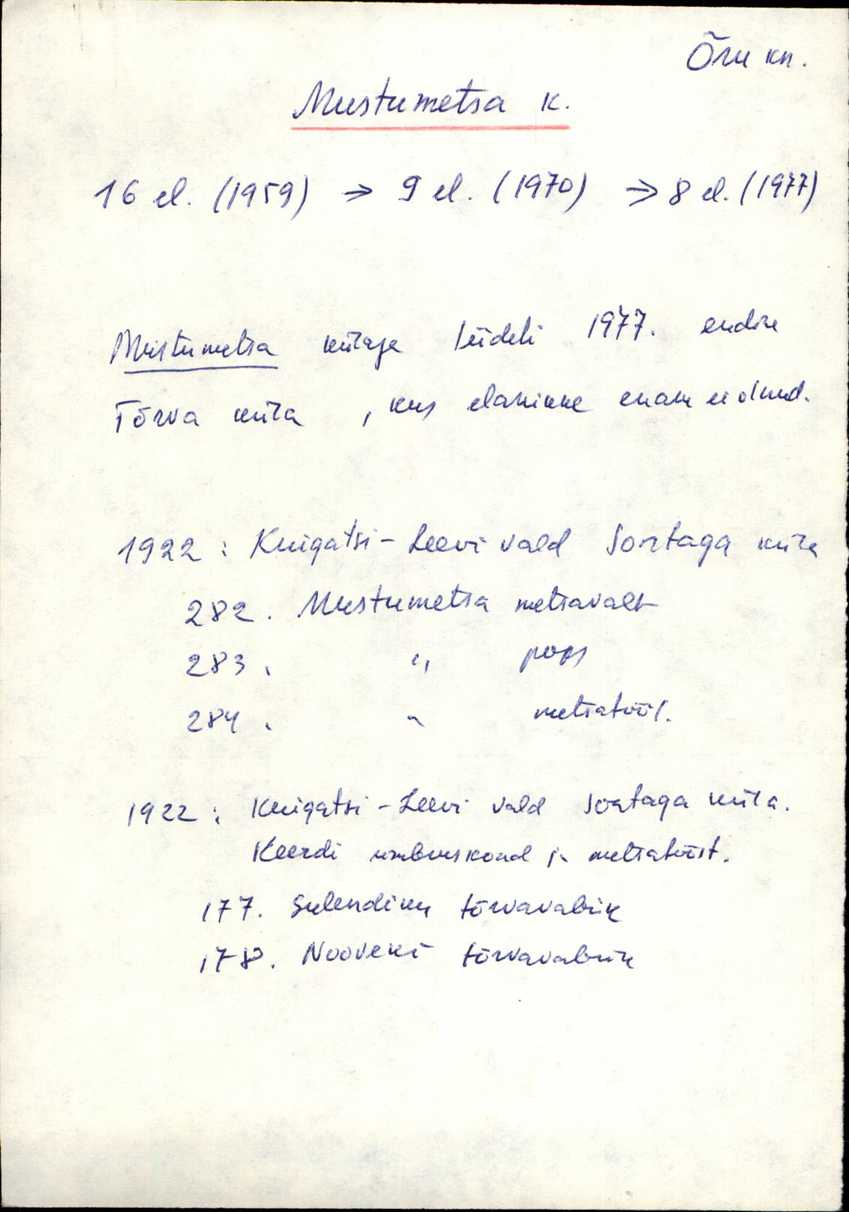 Õru kn.
Mustumetsa k.
16 el. (1959) → 9 el. (1970) → 8 el. (1977)
Mustumetsa külaga liideti 1977. endine
Tõrva küla, kus elanikke enam ei olnud.
1922: Kuigatsi-Leevi vald Sontaga küla
282. Mustumetsa metsavaht
283. " pops
284. " metsatööl.
1922: Kuigatsi-Leevi vald Sontaga küla.
Keerdi ümbruskond ja metsatööst.
177. tõrvavabrik
178. Nooveki tõrvavabrik